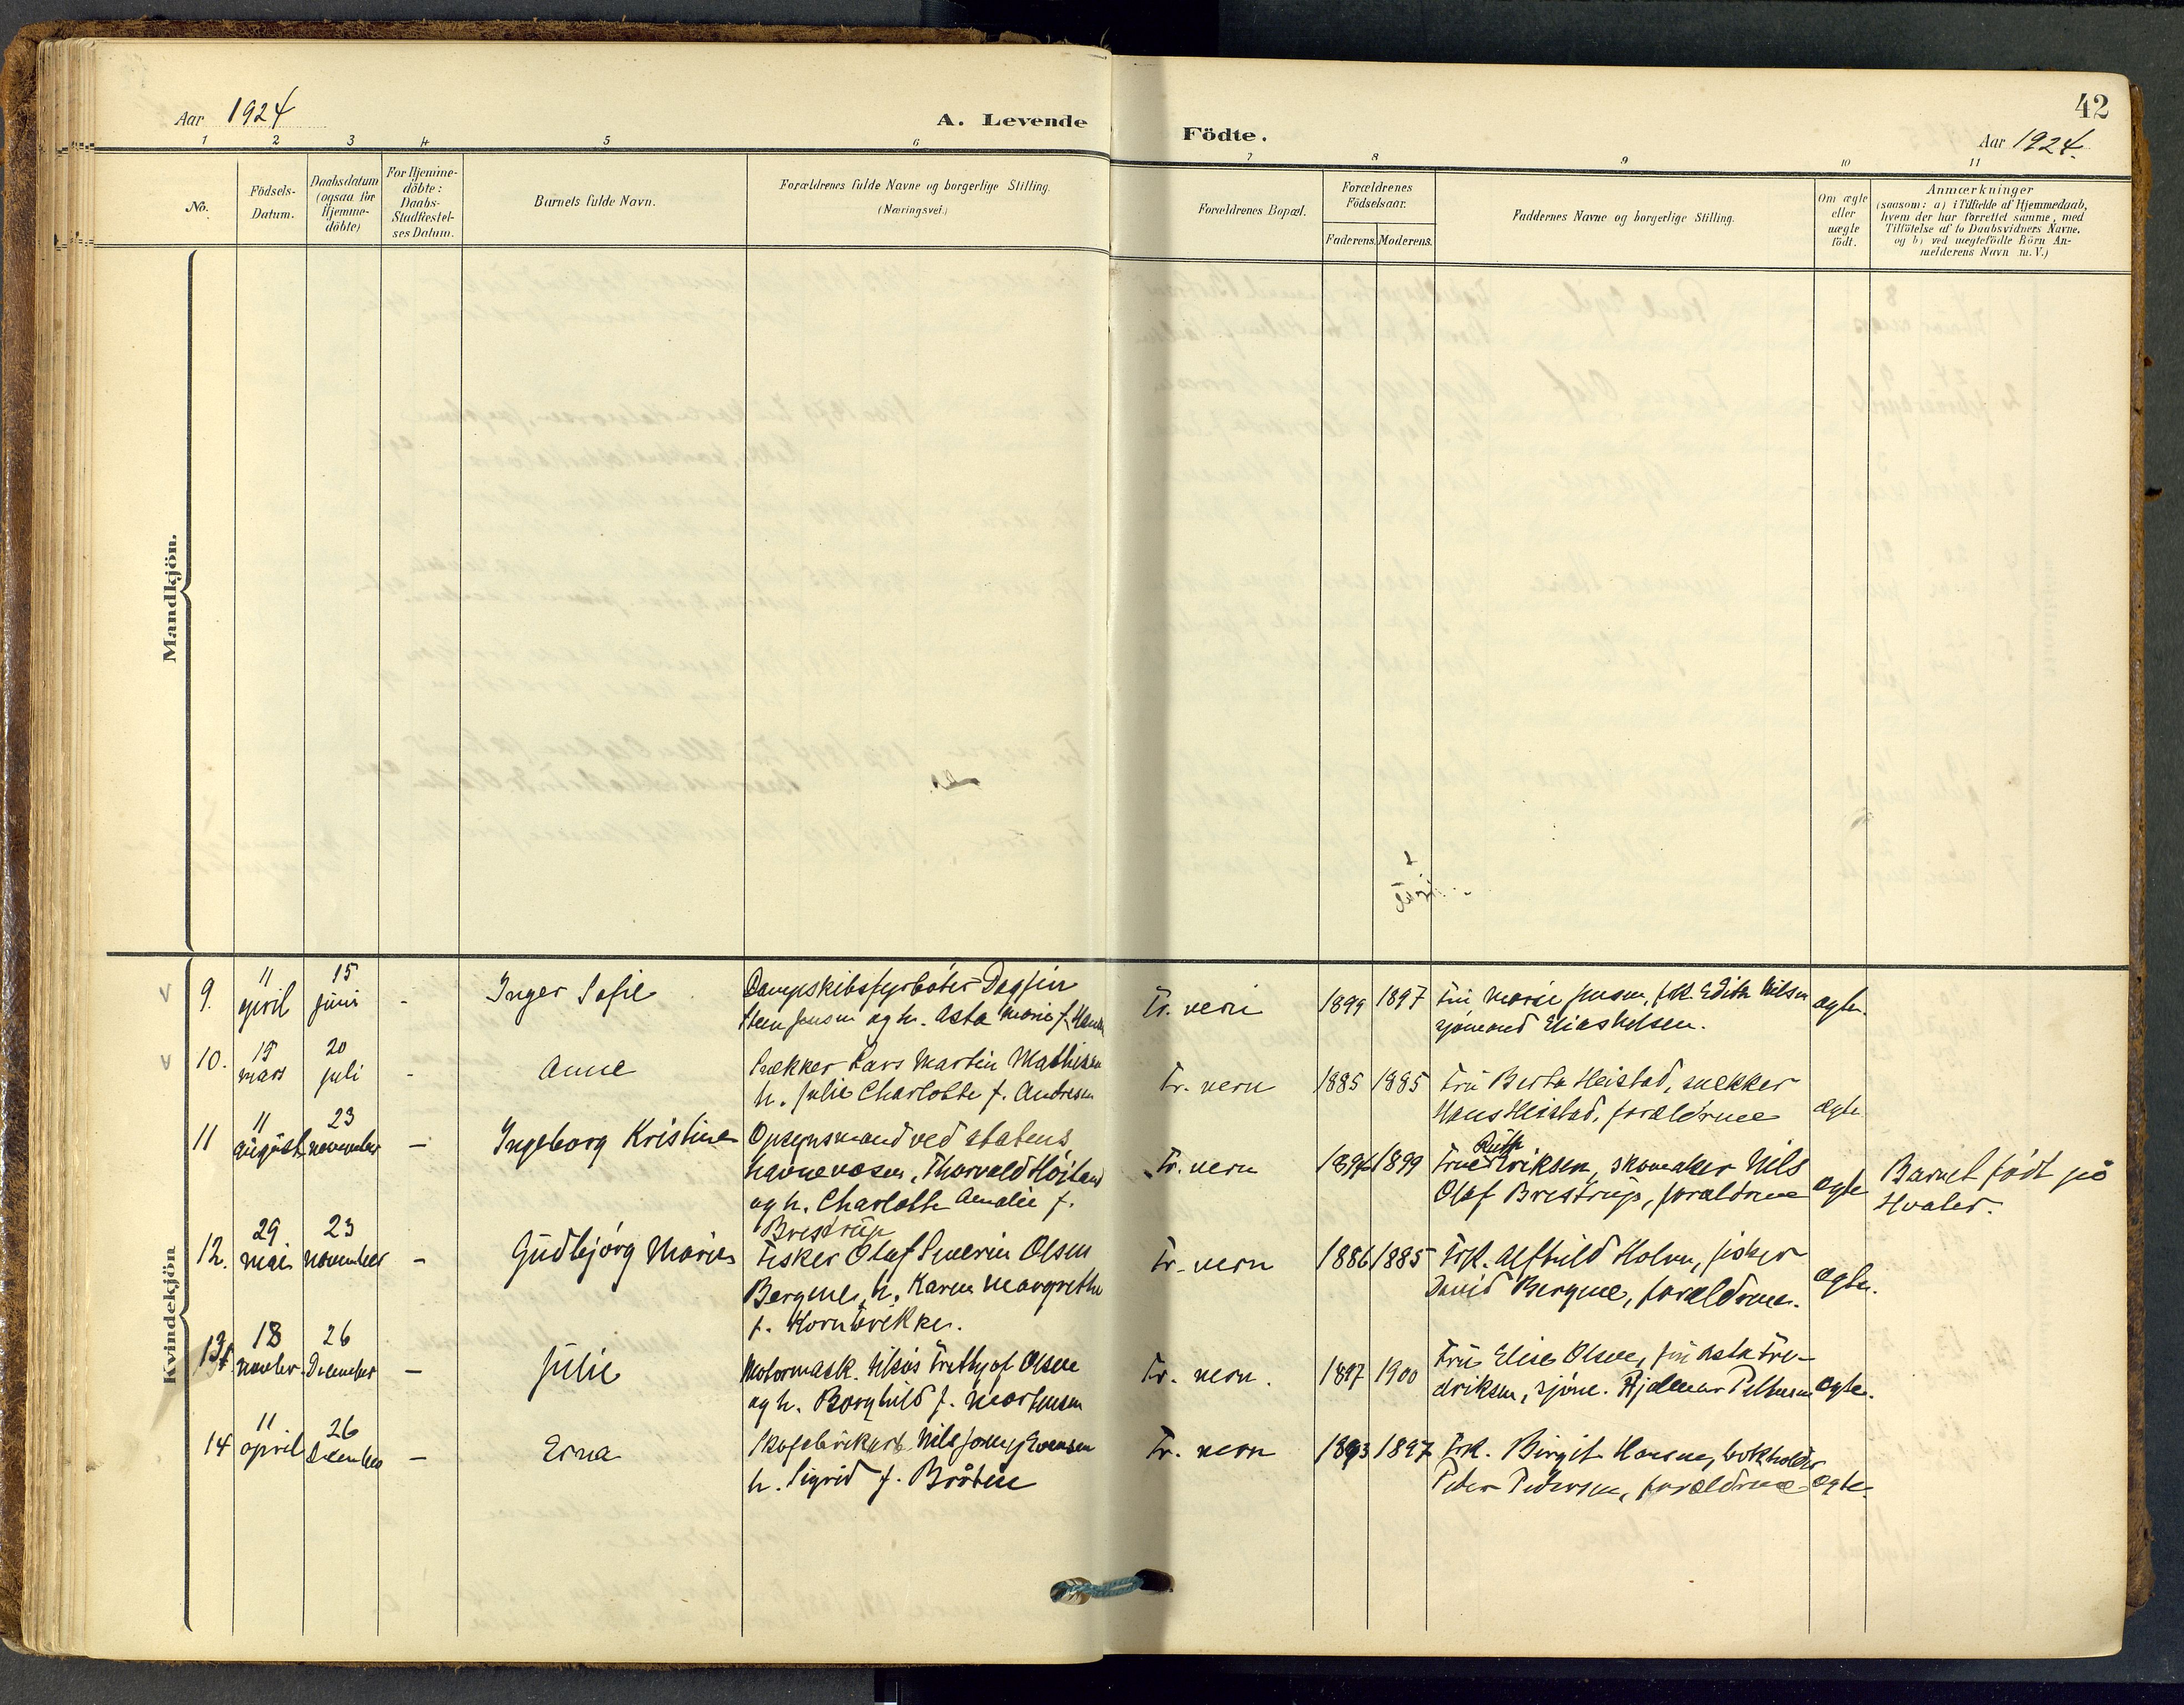 Aar 1924
A. Levende
Födte.
42
Aar 1924.
1 2 3 4 5 6 7 8 9 10 11
No.
Födsels-
Datum.
Daabsdatum
(ogsaa for
Hjemme-
döbte)
For Hjemme-
döbte:
Daabs-
Stadfæstel-
ses Datum.
Barnets fulde Navn.
Forældrenes fulde Navne og borgerlige Stilling.
(Næringsvei.)
Forældrenes Bopæl.
Forældrenes
Födselsaar.
Faderens. Moderens.
Faddernes Navne og borgerlige Stilling.
Om ægte
eller
uægte
födt.
Anmærkninger
(saasom: a) i Tilfælde af Hjemmedaab,
hvem der har forrettet samme, med
Tilföielse af to Daabsvidners Navne.
og b) ved uægtefödte Börn An-
melderens Navn m.V.)
Mandkjön.
Kvindekjön
9. 11 april 15 juni - Inger Sofie
Dampskibsfyrböter Dagfin
Steen Jensen og h. Asta Marie f.
Tr. vern 1899 1897
Fru Marie Jensen, frk. Edith Nilsen
sjömand Elias Nilsen.
ægte.
10. 15 mars 20 juli - Anne
Snekker Lars Martin Mathisen
h. Julie Charlotte f. Andresen
Tr. vern 1885 1885
Fru Berta Heistad, snekker
Hans Heistad, forældrene
ægte
11 11 august 23 november - Ingeborg Kristine
Opsynsmand ved statens
havnevæsen, Thorvald Höiland
og h. Charlotte Amalie f.
Brestrup
Tr. vern 1899
Ruth
Olaf Brestrup, forældrene
skomaker Nils
ægte
Barnet födt på
Hvaler.
12. 29 mai 23 november - Gudbjörg Marie
Fisker Olaf Severin Olsen
Bergene, h. Karen Margrethe
f. Kornbrekke.
Tr. vern 1886 1885
Frk. Alfhild Holm, fisker
David Bergene, forældrene.
ægte.
13. 18 novber. 26 December - Julie
Motormask. Nilsos Frethjof Olsen
og h. Borghild f. Mortensen
Tr. vern. 1897 1900
Fru Elise Olsen, fru Asta Fre-
driksen, sjöm. Hjalmar Pettersen
ægte.
14 11 april 26 December - Erna
h. Sigrid f. Bråten
Tr. vern 1893 1897
Frk. Birgit Hansen, bokholder
Peder Pedersen, forældrene
ægte.